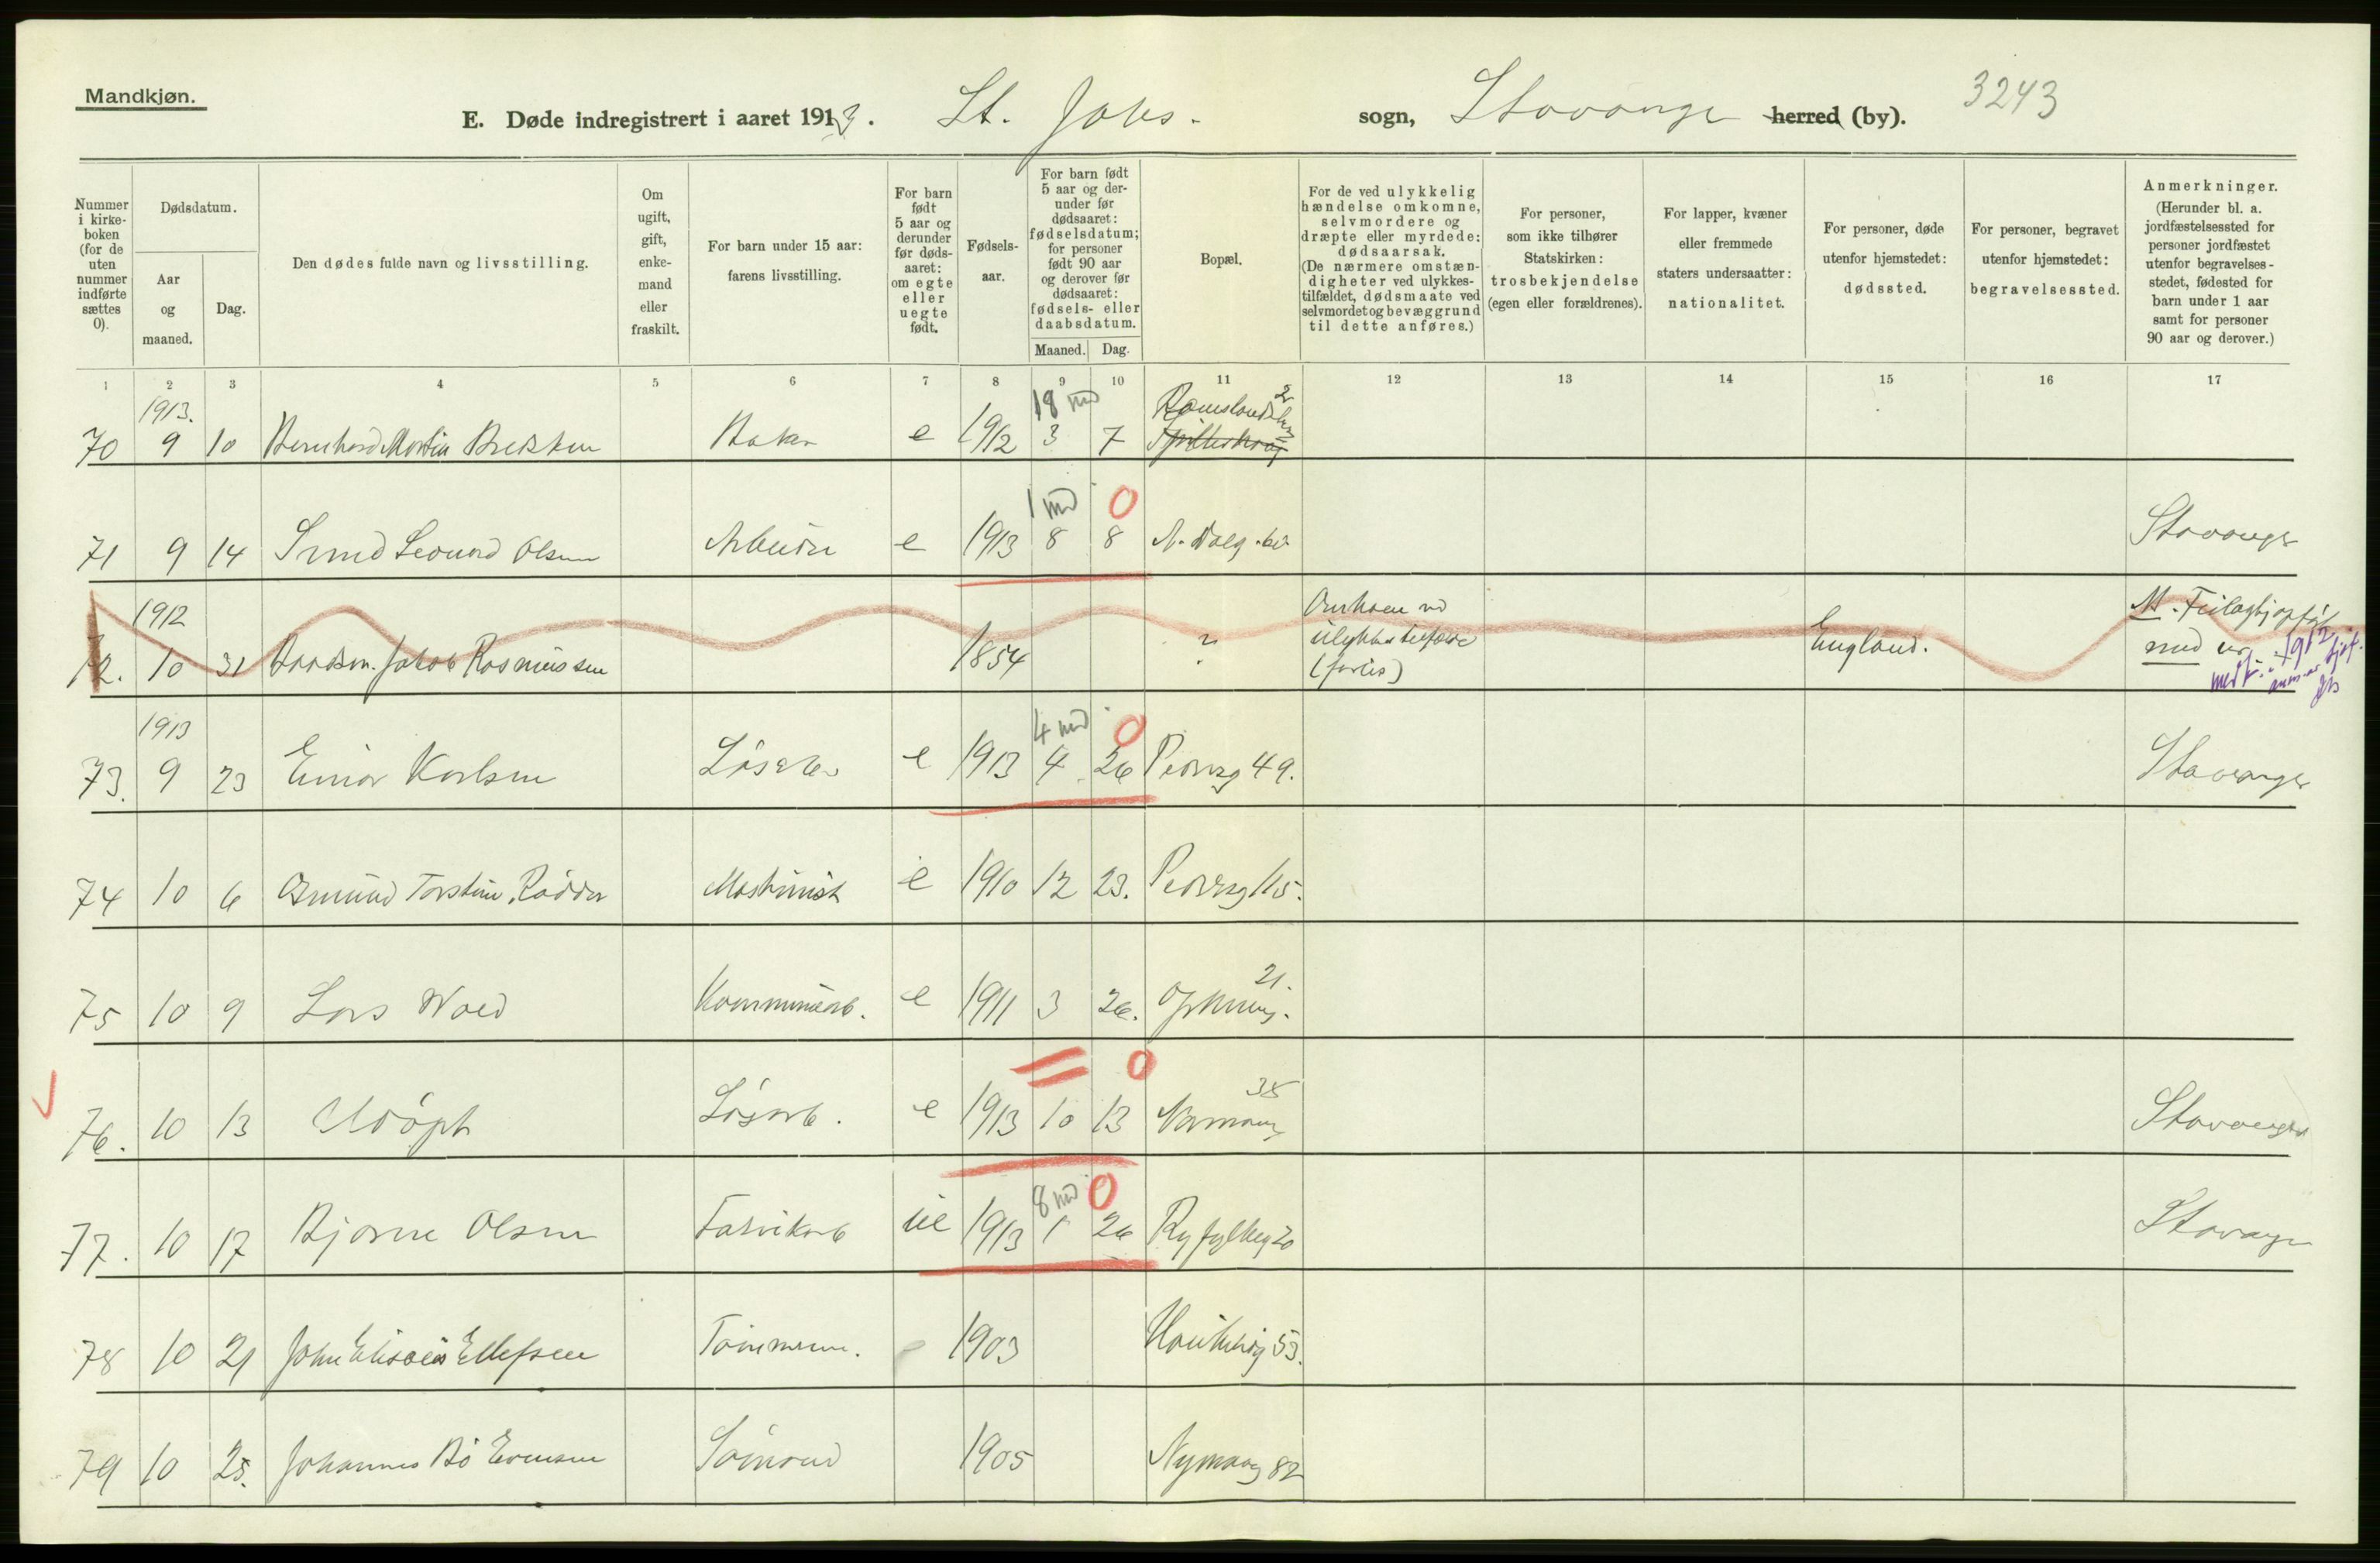 Mandkjøn.
E. Døde indregistrert i aaret 1913. St. Johs. sogn, Stavanger herred (by). 3243
Nummer i kirke-boken (for de uten nummer indførte sættes 0).
Dødsdatum.
Aar og maaned.
Dag.
Den dødes fulde navn og livsstilling.
Om ugift, gift, enke-mand eller fraskilt.
For barn under 15 aar: farens livsstilling.
For barn født 5 aar og derunder før døds-aaret: om egte eller uegte født.
Fødsels-aar.
For barn født 5 aar og der-under før dødsaaret: fødselsdatum; for personer født 90 aar og derover før dødsaaret: fødsels- eller daabsdatum.
Maaned. Dag.
Bopæl.
For de ved ulykkelig hændelse omkomne, selvmordere og dræpte eller myrdede: dødsaarsak. (De nærmere omstæn-digheter ved ulykkes-tilfældet, dødsmaate ved selvmordet og bevæggrund til dette anføres.)
For personer, som ikke tilhører Statskirken: trosbekjendelse (egen eller forældrenes).
For lapper, kvæner eller fremmede staters undersaatter: nationalitet.
For personer, døde utenfor hjemstedet: dødssted.
For personer, begravet utenfor hjemstedet: begravelsessted.
Anmerkninger. (Herunder bl. a. jordfæstelsessted for personer jordfæstet utenfor begravelses-stedet, fødested for barn under 1 aar samt for personer 90 aar og derover.)
1 2 3 4 5 6 7 8 9 10 11 12 13 14 15 16 17
1913.
18 md
70 9 10 Bernhard Martin Baker e 1912 3 7
1 md 0
71 9 14 Leonard Olsen Arbeider e 1913 8 8 Stavanger
1912
72. 10 31 Jakob Rasmussen 1854 ? Omkom ved ulykkestilfælde (forlis) England.
1912
1913
4 md 0
73. 9 23 Einar Karlsen Løsarb e 1913 4 26 Pedersg 49. Stavanger
74 10 6 Asmund Torstein Rødder Maskinist e 1910 12 23. Pedersg 115.
21.
75 10 9 Lars Kommunearb. e 1911 3 26.
0
76. 10 13 Udøpt Løsarb. e 1913 10 13 Stavanger
8 md 0
77. 10 17 Bjarne Olsen Fabrikarb ue 1913 1 26 Ryfylkeg 20 Stavanger
78 10 21 John Elisæus Ellefsen Tømmerm. 1903 53.
79 10 25. Johannes Bø Evensen Sømand 1905 Nymansv 82